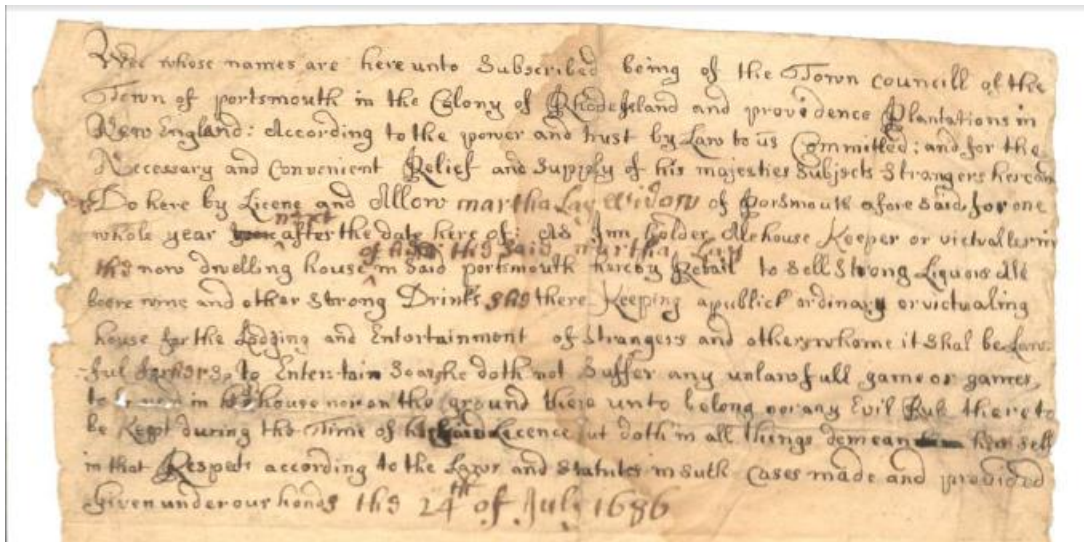 Wee whose names are here unto Subscribed being of the Town councill of the
Town of portsmouth in the Colony of RhodeIsland and providence Plantations in
New England: According to the power and trust by Law to us Committed; and for the
Necessary and Convenient Relief and Supply of his majesties Subjects Strangers
Do here by Licene and Allow martha Lay widow of Porsmouth afore said, for one
next
whole year after the date here of: As Inn holder Alehouse Keeper or
of the said martha Lay
the now dwelling house in Said portsmouth hereby Retail to sell Strong Liquors Ale
beere wine and other Strong Drinks she there Keeping a publick ordinary or victualing
house for the Lodging and Entertainment of Strangers and others whome it Shal be Law-
ful to Entertain Soe as she doth not Suffer any unlawfull game or games
to in house nor on the ground there unto belong nor any Evil Rule there to
be Kept during the Time of Licence but doth in all things demean her self
in that Respect according to the Laws and Statutes in Such Cases made and provided
Given under our hands this 24th of July 1686